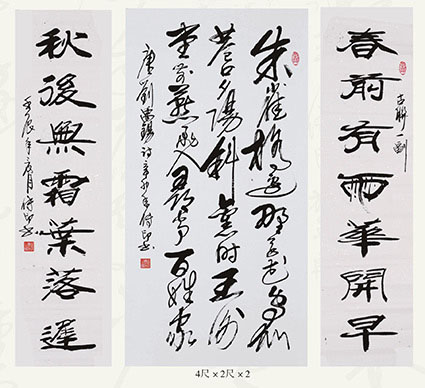 春前有雨華開早
古聯一副
朱雀橋邊野草花烏衣
巷口夕陽斜舊時王謝
堂前燕飛入尋常百姓家
唐劉禹錫詩辛卯年
秋後無霜葉落遲
壬辰年
4尺×2尺×2